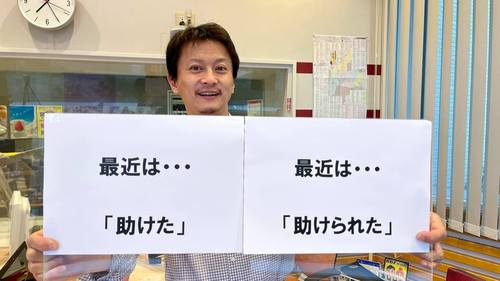 最近は・・・
「助けた」
最近は・・・
「助けられた」